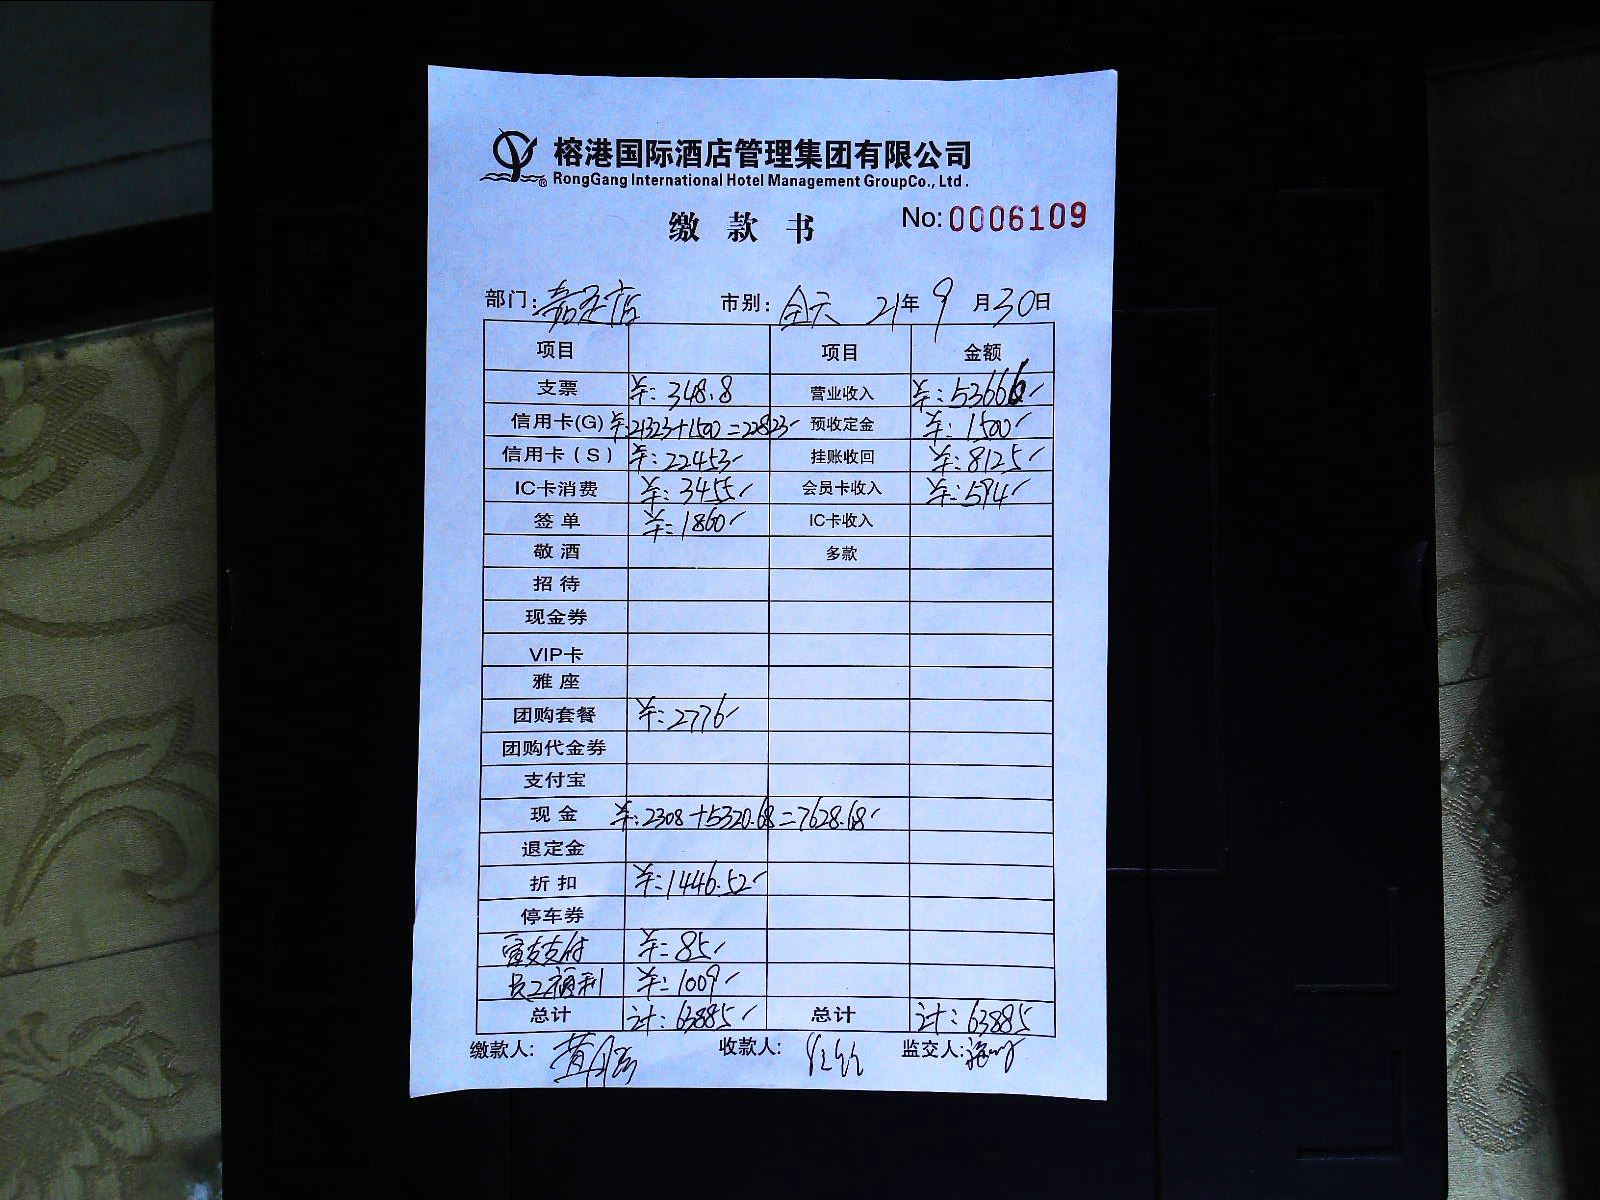 榕港国际酒店管理集团有限公司
RongGang International Hotel Management GroupCo., Ltd.
缴款书 No:0006109
部门: 嘉定店 市别: 全天 21年 9月30日
项目 项目 金额
支票 ¥:348.8 营业收入 ¥:53666
信用卡(G) ¥:21323+1500=22823 预收定金 ¥:1500
信用卡(S) ¥:22453 挂账收回 ¥:8125
IC卡消费 ¥:3455 会员卡收入 ¥:594
签单 ¥:1860 IC卡收入
敬酒 多款
招待
现金券
VIP卡
雅座
团购套餐 ¥:2776
团购代金券
支付宝
现金 ¥:2308+5320.68=7628.68
退定金
折扣 ¥:1446.52
停车券
支付 ¥:85
员工福利 ¥:1009
总计 计:63885 总计 计:63885
缴款人: 收款人: 监交人: